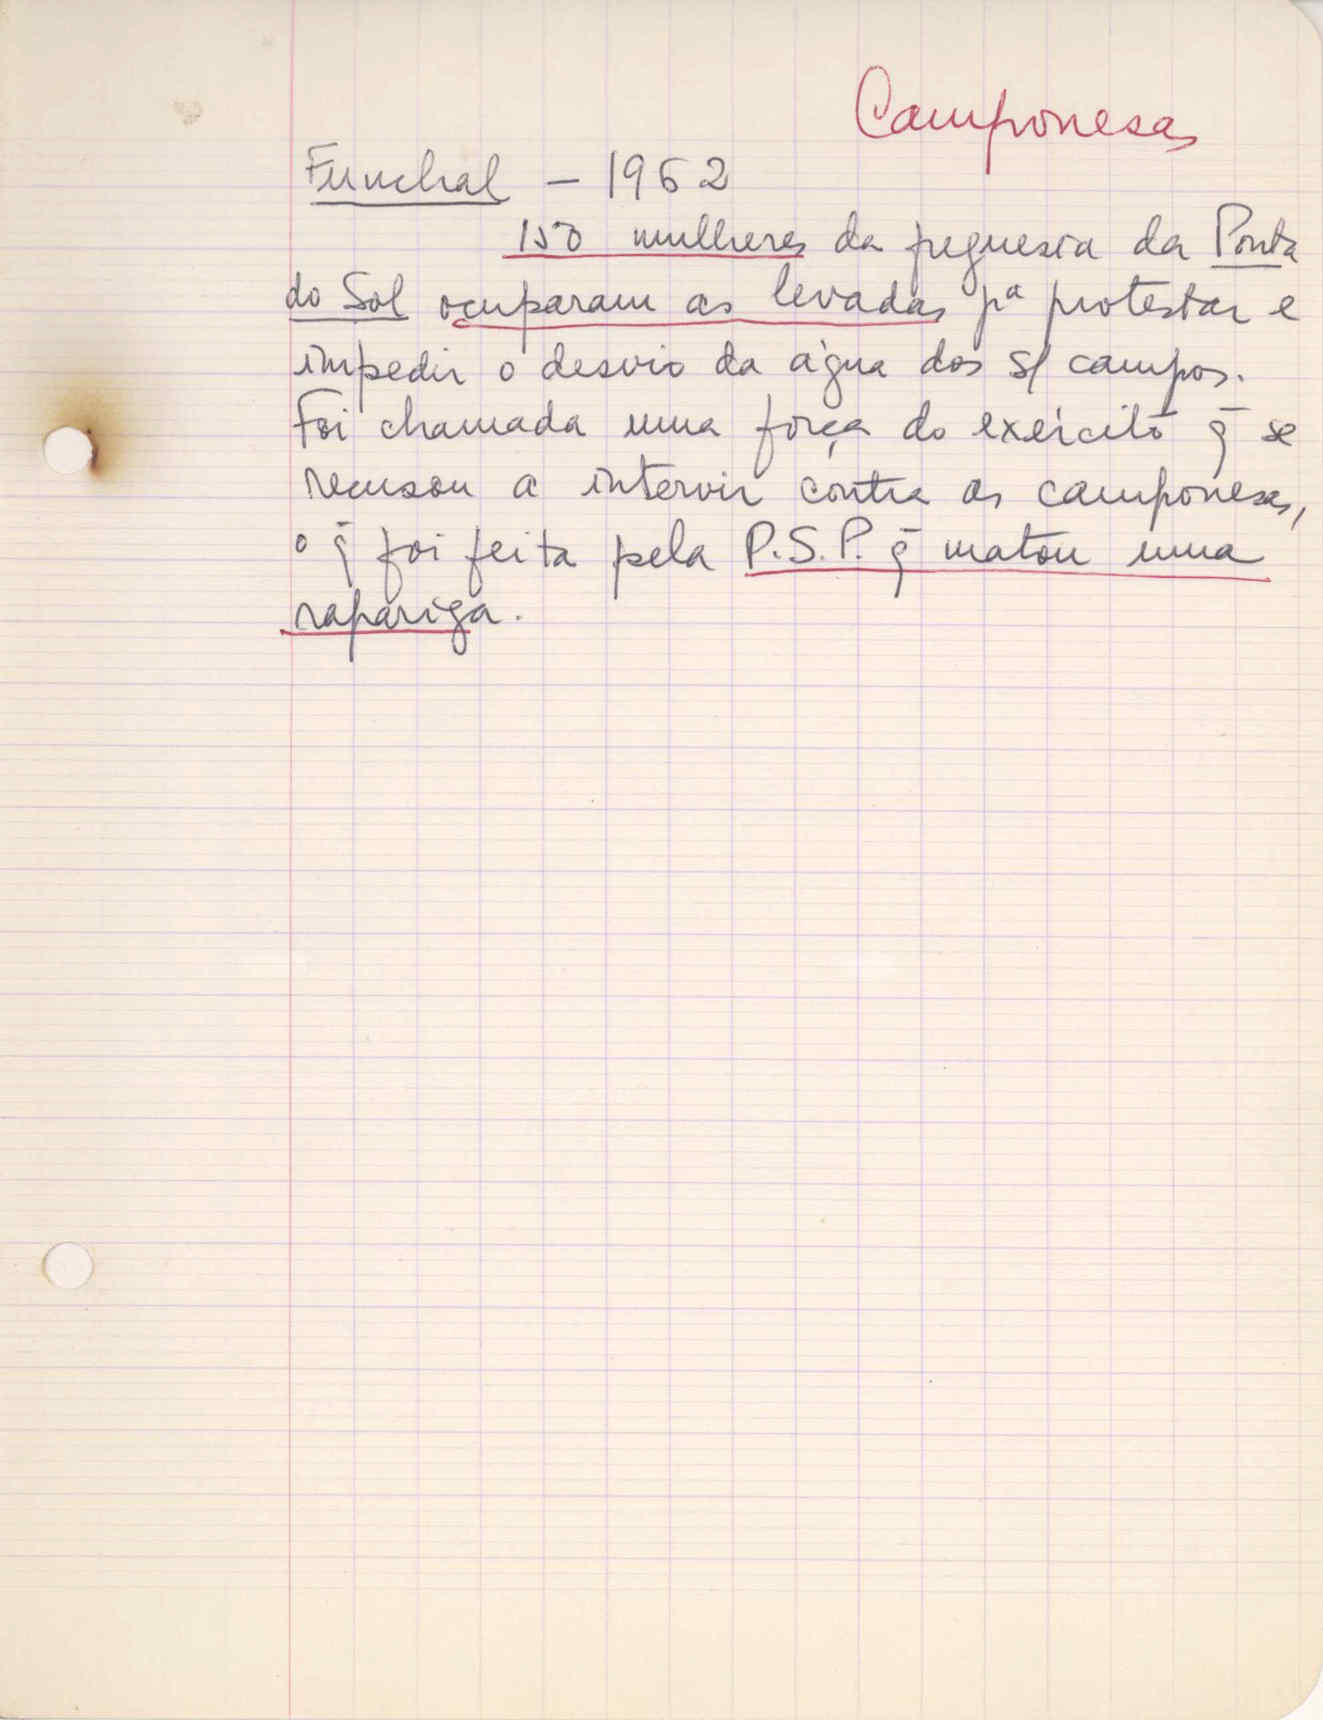 Camponesas
Funchal - 1962
150 mulheres da freguesia da Ponta
do Sol ocuparam as levadas pª protestar e
impedir o desvio da água dos s/ campos.
Foi chamada uma força do exército q̄ se
recusou a intervir contra as camponesas,
o q̄ foi feita pela P.S.P. q̄ matou uma
rapariga.